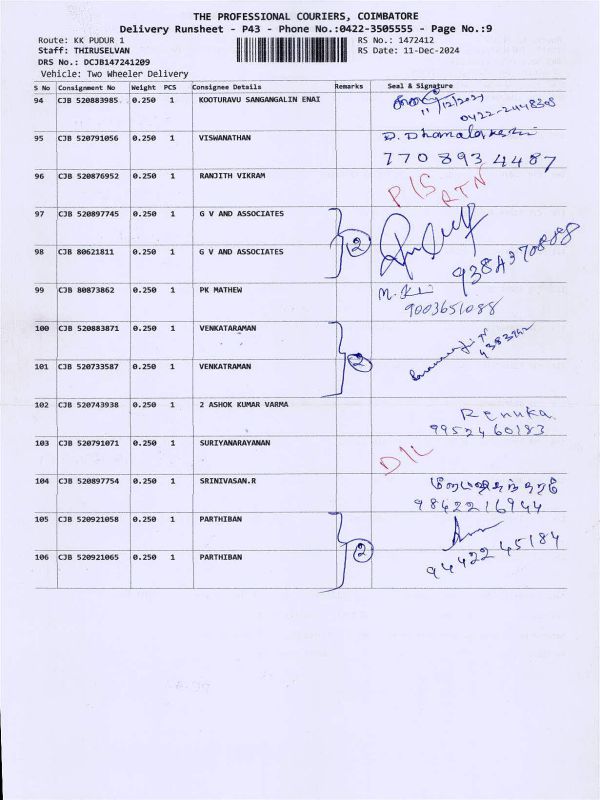 THE PROFESSIONAL COURIERS, COIMBATORE
Delivery Runsheet - P43 - Phone No.:0422-3505555 - Page No.:9
Route: KK PUDUR 1 RS No.: 1472412
Staff: THIRUSELVAN RS Date: 11-Dec-2024
DRS No.: DCJB147241209
Vehicle: Two Wheeler Delivery
S No Consignment No Weight PCS Consignee Details Remarks Seal & Signature
94 CJB 520883985 0.250 1 KOOTURAVU SANGANGALIN ENAI
0422-2448308
95 CJB 520791056 0.250 1 VISWANATHAN
770 893 4487
96 CJB 520876952 0.250 1 RANJITH VIKRAM P/S RTN
97 CJB 520897745 0.250 1 G V AND ASSOCIATES
2
98 CJB 80621811 0.250 1 G V AND ASSOCIATES
99 CJB 80873862 0.250 1 PK MATHEW
9003651088
100 CJB 520883871 0.250 1 VENKATARAMAN
2
101 CJB 520733587 0.250 1 VENKATRAMAN
102 CJB 520743938 0.250 1 2 ASHOK KUMAR VARMA Renuka
9952460183
103 CJB 520791071 0.250 1 SURIYANARAYANAN D/L
104 CJB 520897754 0.250 1 SRINIVASAN.R
9842216944
105 CJB 520921058 0.250 1 PARTHIBAN
2
106 CJB 520921065 0.250 1 PARTHIBAN 94422 45184